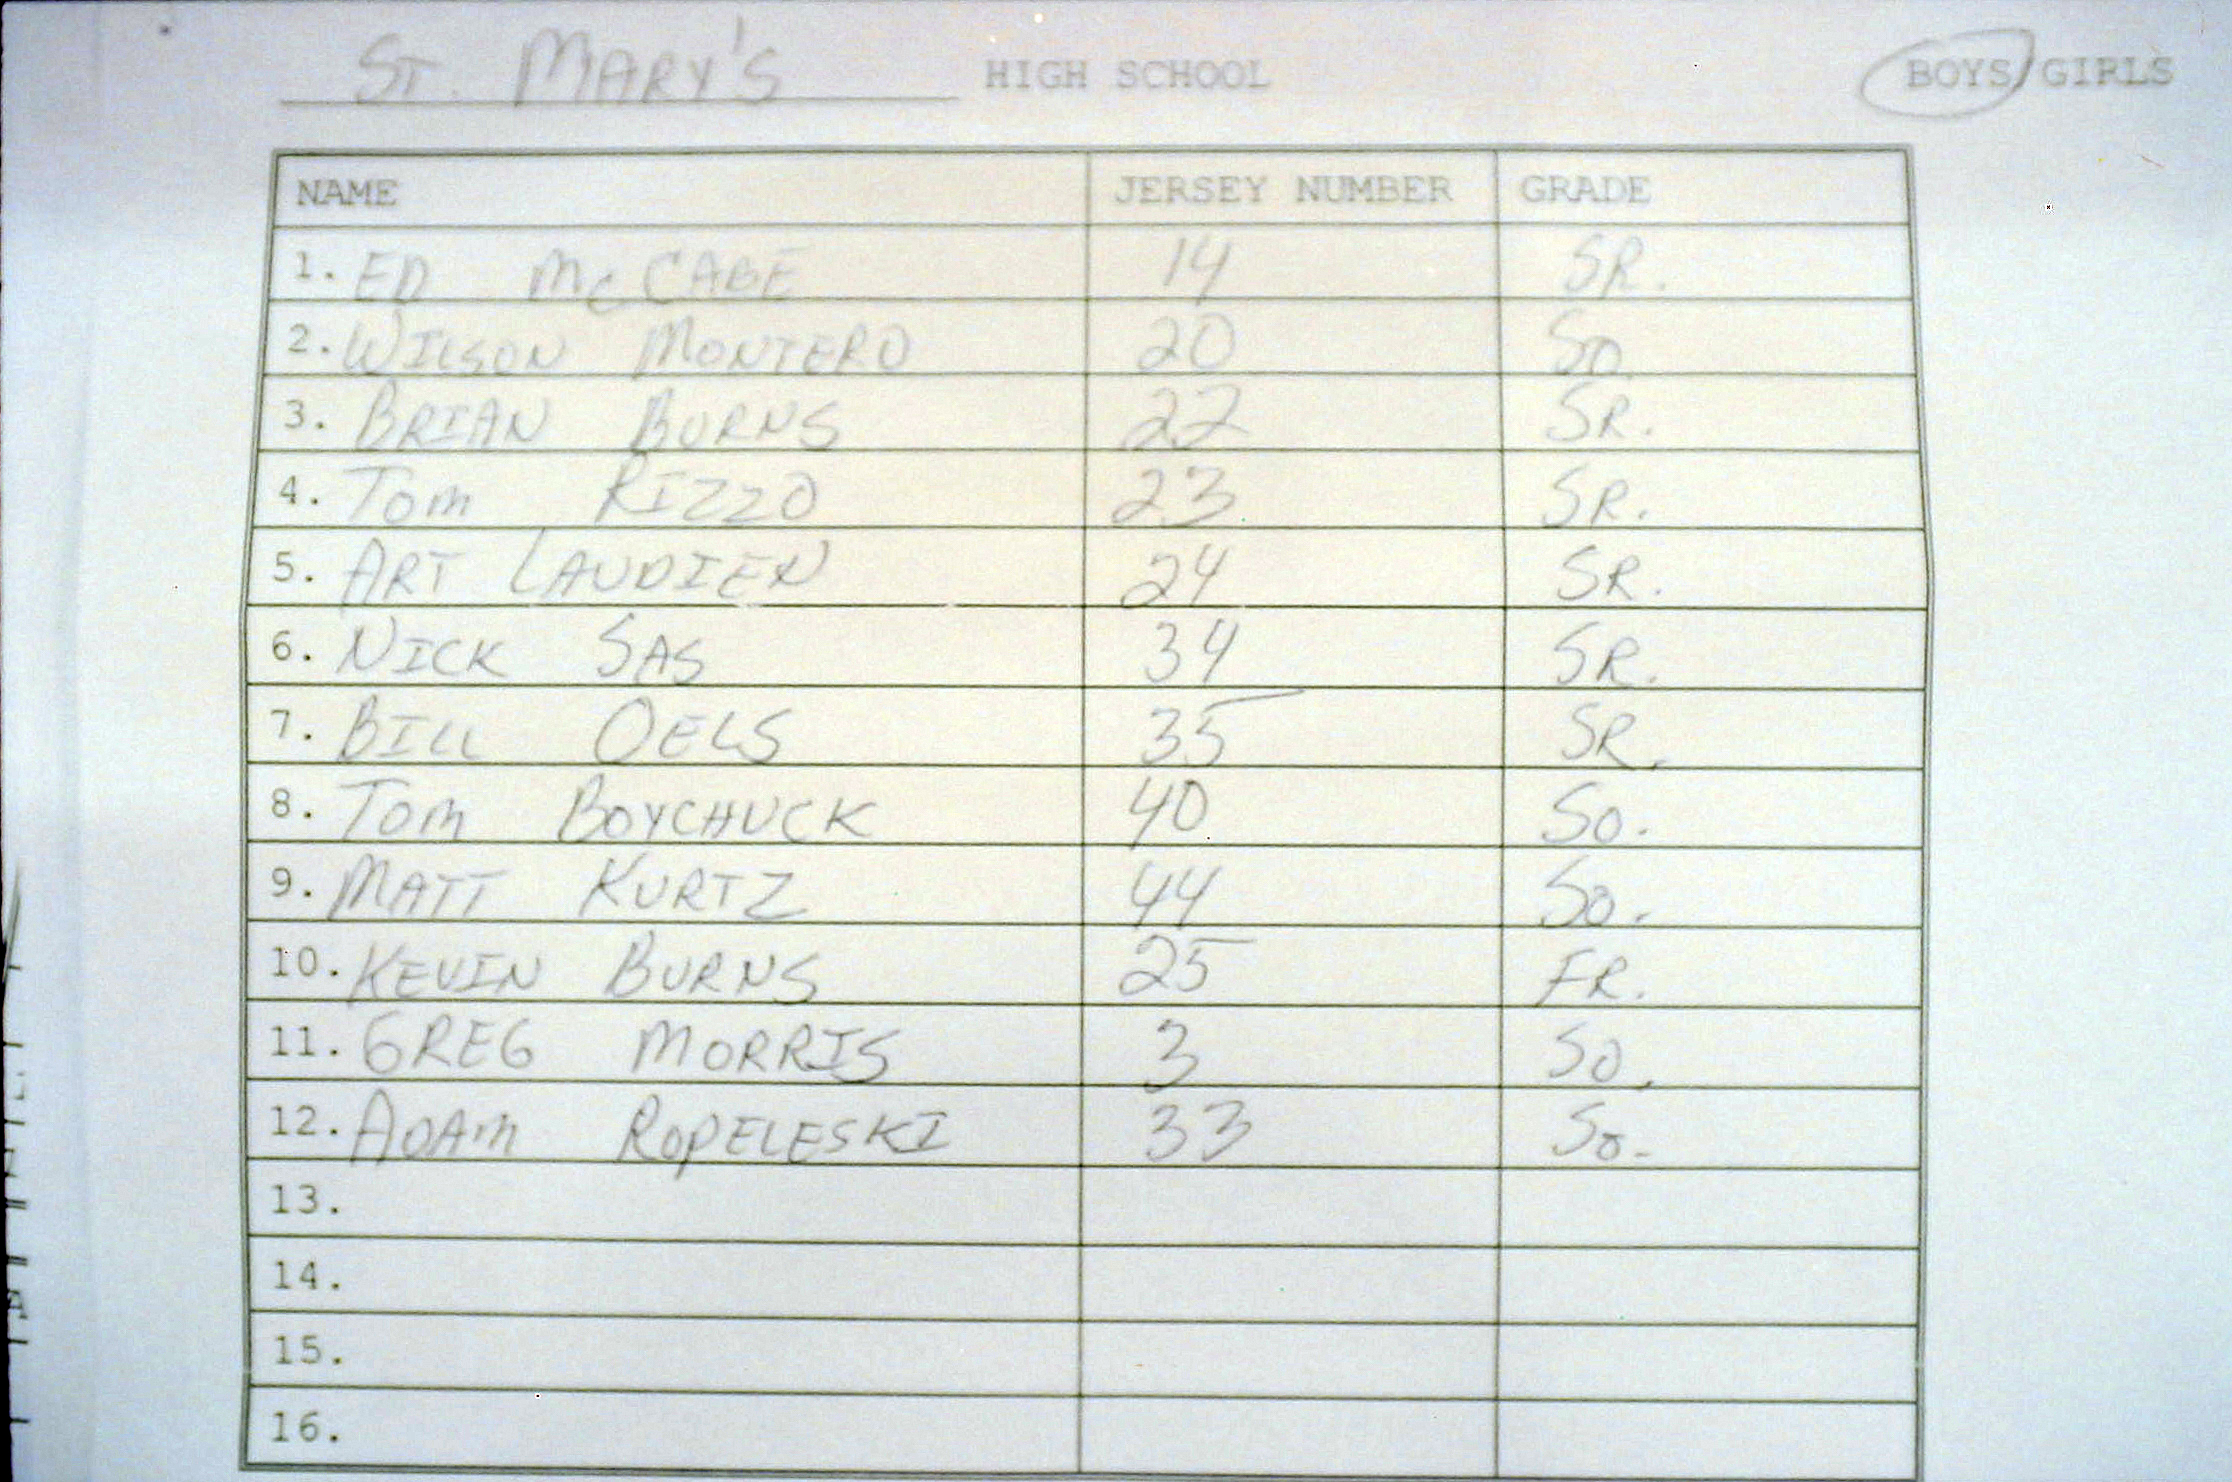 ST. MARY'S HIGH SCHOOL BOYS/GIRLS
NAME JERSEY NUMBER GRADE
1. ED McCABE 14 SR.
2. WILSON MONTERO 20 SO
3. BRIAN BURNS 22 SR.
4. TOM RIZZO 23 SR.
5. ART LAUDIEN 24 SR.
6. NICK SAS 34 SR.
7. BILL OELS 35 SR.
8. TOM BOYCHUCK 40 SO.
9. MATT KURTZ 44 SO.
10. KEVIN BURNS 25 FR.
11. GREG MORRIS 3 SO.
12. ADAM ROPELESKI 33 SO.
13.
14.
15.
16.